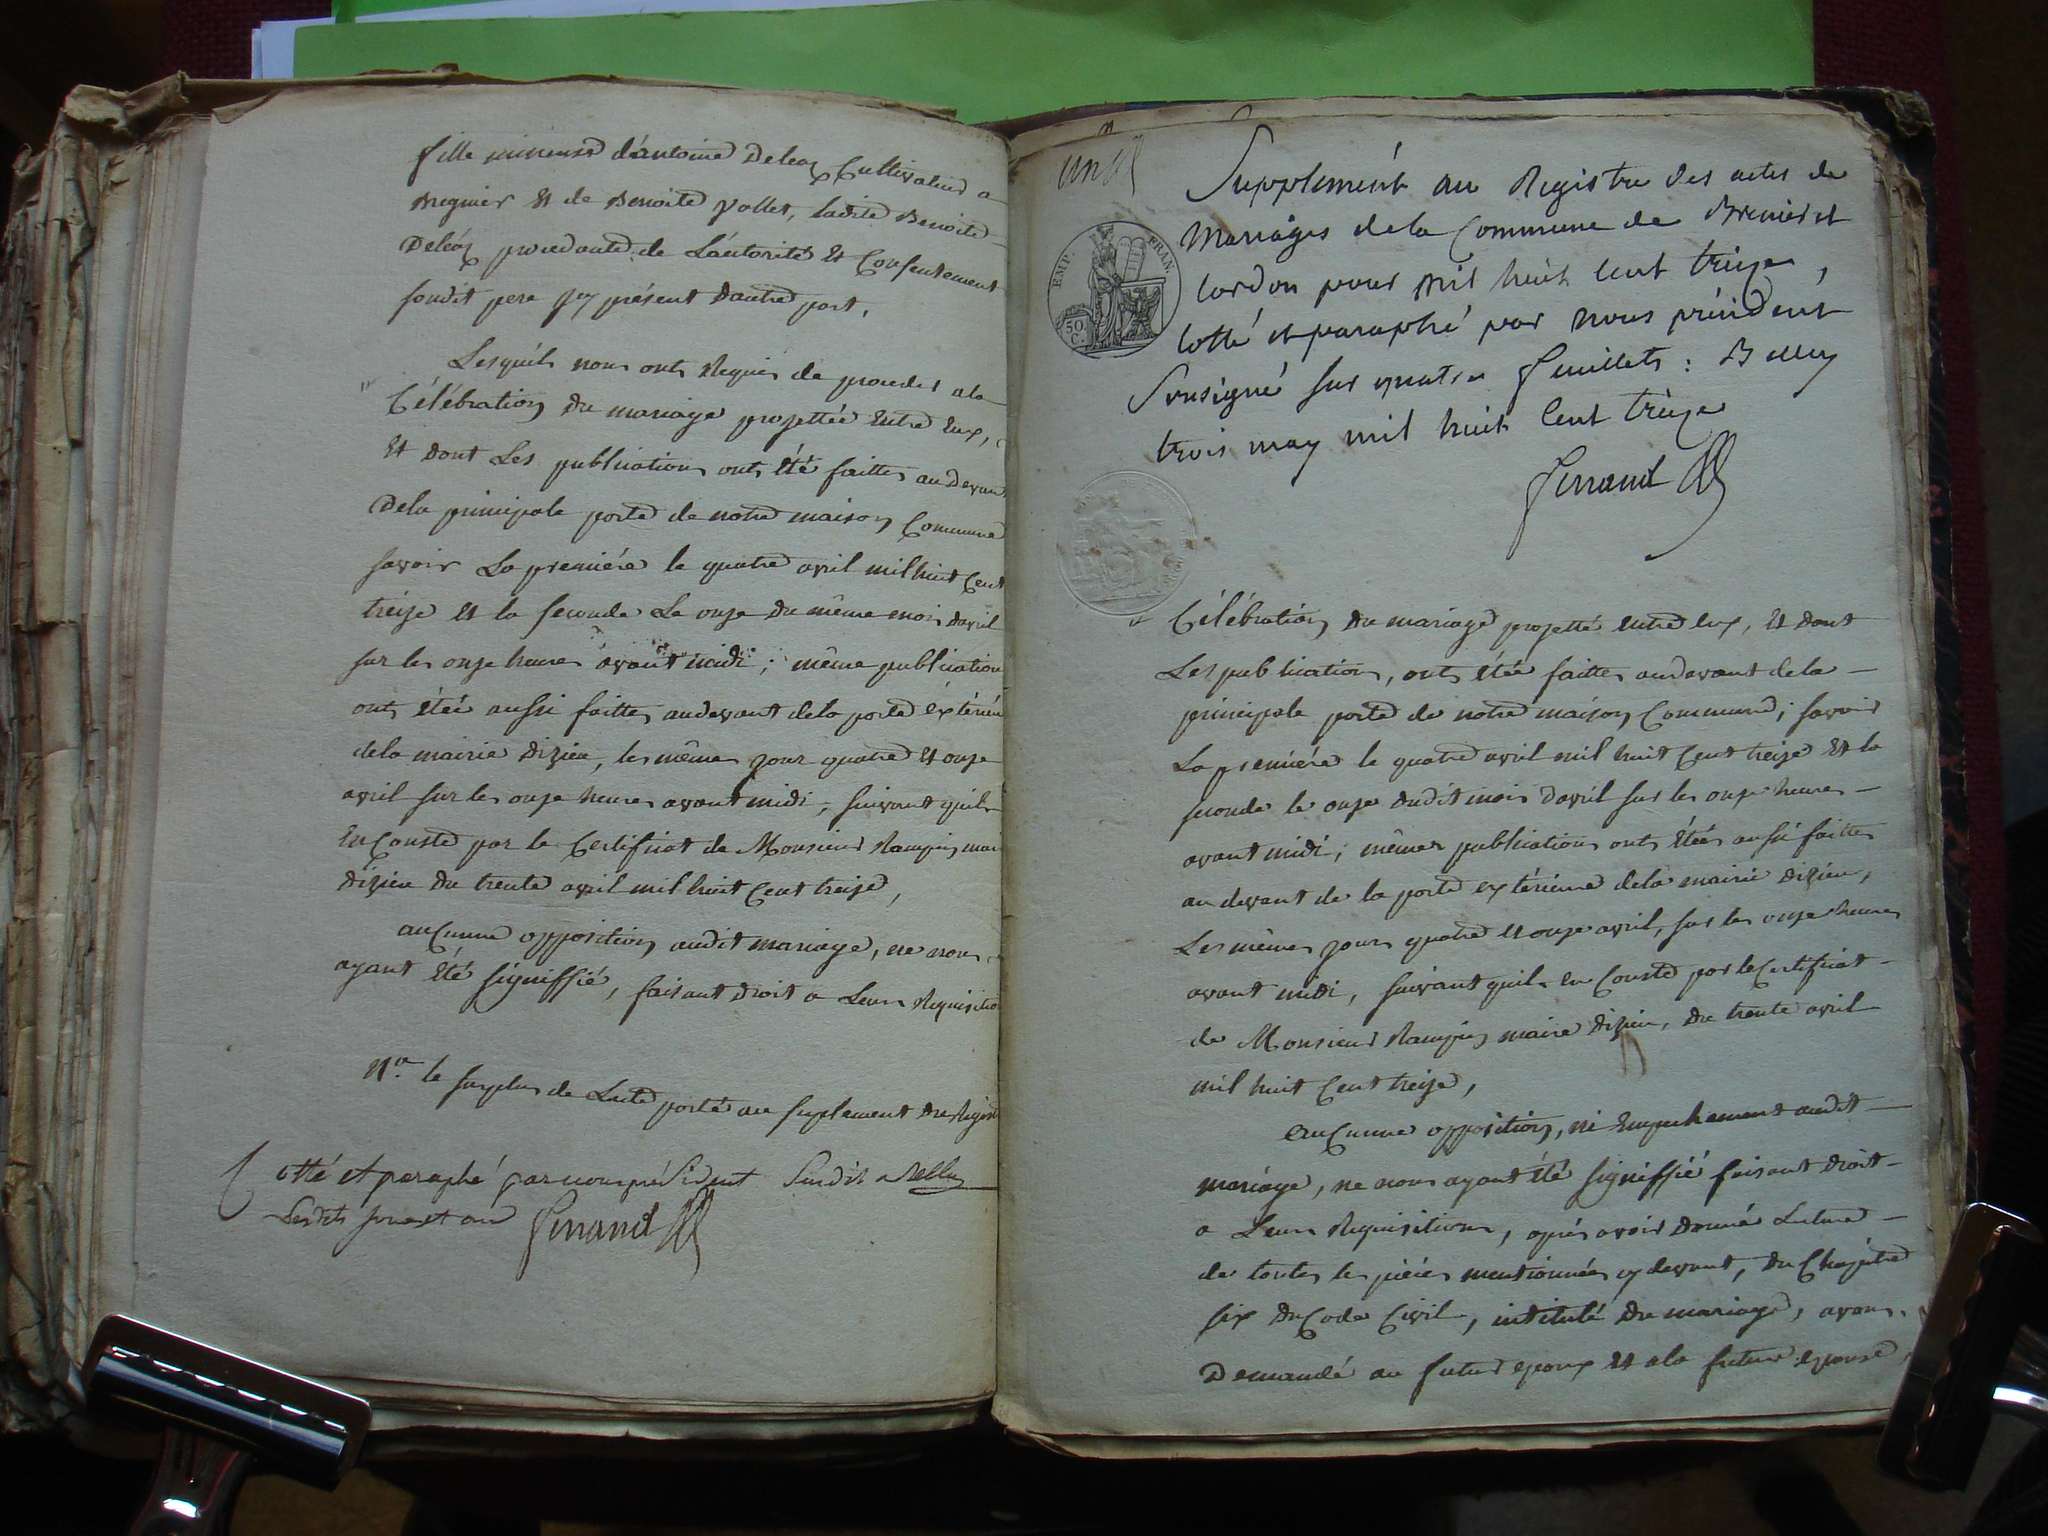 fille mineure d'antoine Deleaz Cultivateur a
Bregnier et de Benoite Vollet, ladite Benoite
Deleaz procedante de L'autorité et Consentement
Sondit pere icy présent dautre part,
Lesquels nous ont Requis de proceder a la
Célébration du mariage projettée Entre Eux,
Et dont Les publications ont été faittes au Devant
De la principale porte de notre maison Commune
savoir La première le quatre avril mil huit Cent
treize et la seconde Le onze du même mois davril
sur les onze heures avant midi ; même publication
ont étée aussi faittes, au devant de la porte éxtérieu
de la mairie dizieu, les mêmes jour quatre Et onze
avril sur les onze heures avant midi, suivant quil
En Conste par le Certifficat de Monsieur mai
dizieu du trente avril mil huit Cent treize,
auCunne opposition audit mariage, ne nous
ayant Eté signiffié, faisant droit a Leurs Réquisitio
Na. le surplus de Lacte porté au suplement du Regist
Cotté et paraphé par nous président Susdit a Belley
Lesdits jour et an Ferrand
un
Supplément au Registre des actes de
Mariages de la Commune de Brenier et
Cordon pour mil huit Cent treize,
Cotté et paraphé par nous président
Sousigné sur quatre feuillets : Belley
trois may mil huit Cent treize
Ferrand
EMP. FRAN.
50
C.
Célébration du mariage projetté entre eux, Et dont
Les publications, ont étée faittes au devant de la
principale porte de notre maison Commune ; savoir
La première le quatre avril mil huit Cent treize Et la
seconde le onze dudit mois davril sur les onze heures
avant midi ; mêmes publications ont étées aussi faittes
au devant de la porte extérieure de la mairie dizieu,
Les mêmes jours quatre et onze avril, sur les onze heures
avant midi, suivant quil en Conste par le Certifficat
de Monsieur maire dizieu, du trente avril
mil huit Cent treize,
auCunne opposition, ni Empechement audit
mariage, ne nous ayant été signiffié faisant droit
a Leurs Réquisitions, aprés avoir donné Lecture
de toutes les pièces mentionnées cy devant, du Chapitre
six du Code Civil, intitulé du mariage, avons
Demandé au futur epoux et a la future epouse,